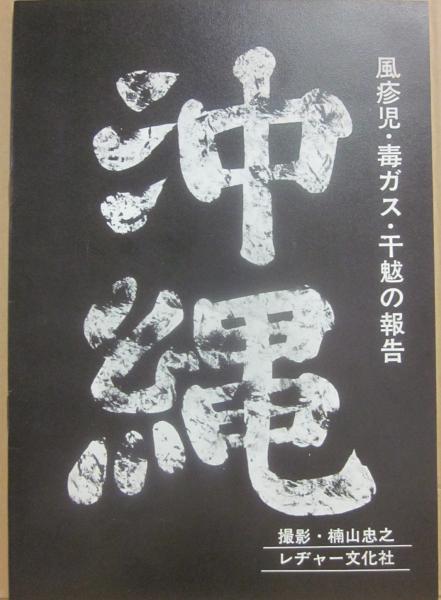 風疹児・毒ガス・干魃の報告
沖縄
撮影・楠山忠之
レヂャー文化社